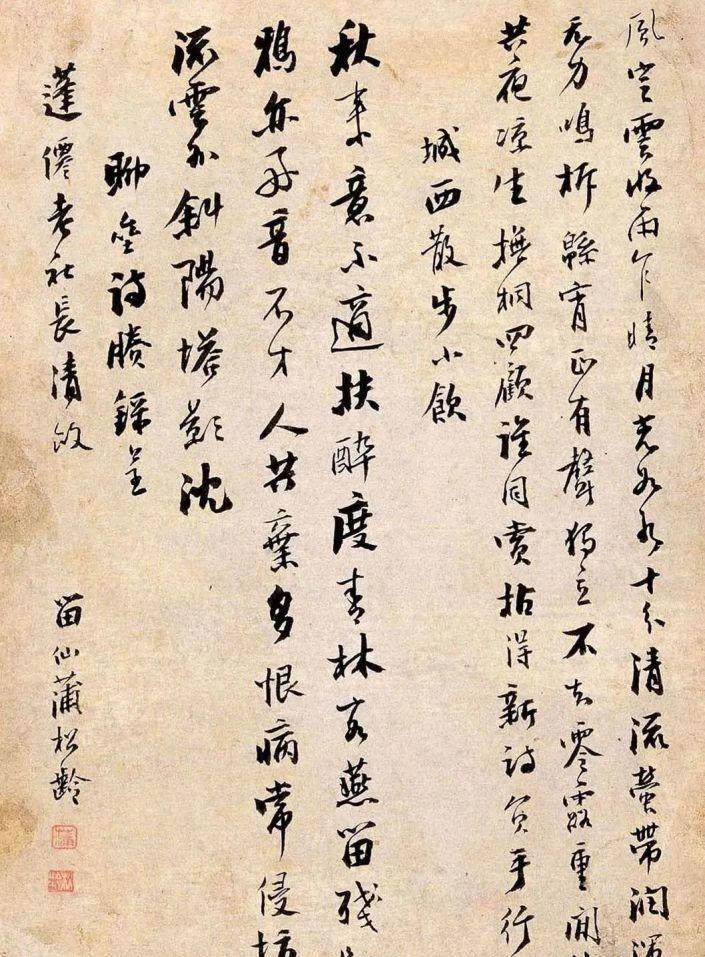 風定雲收雨乍晴月光如水十分清流螢帶潤渾
无力鳴柝緜宵正有聲獨立不知零露重閒
共夜涼生撫桐四顧誰同賞拈得新詩負手行
城西散步小飲
秋來意不適扶醉度青林客燕留殘
鴉亦好音不才人共棄多恨病常侵
流雲外斜陽塔影沈
聊齋詩賸錄呈
蓬僊老社長清政
留仙蒲松齡